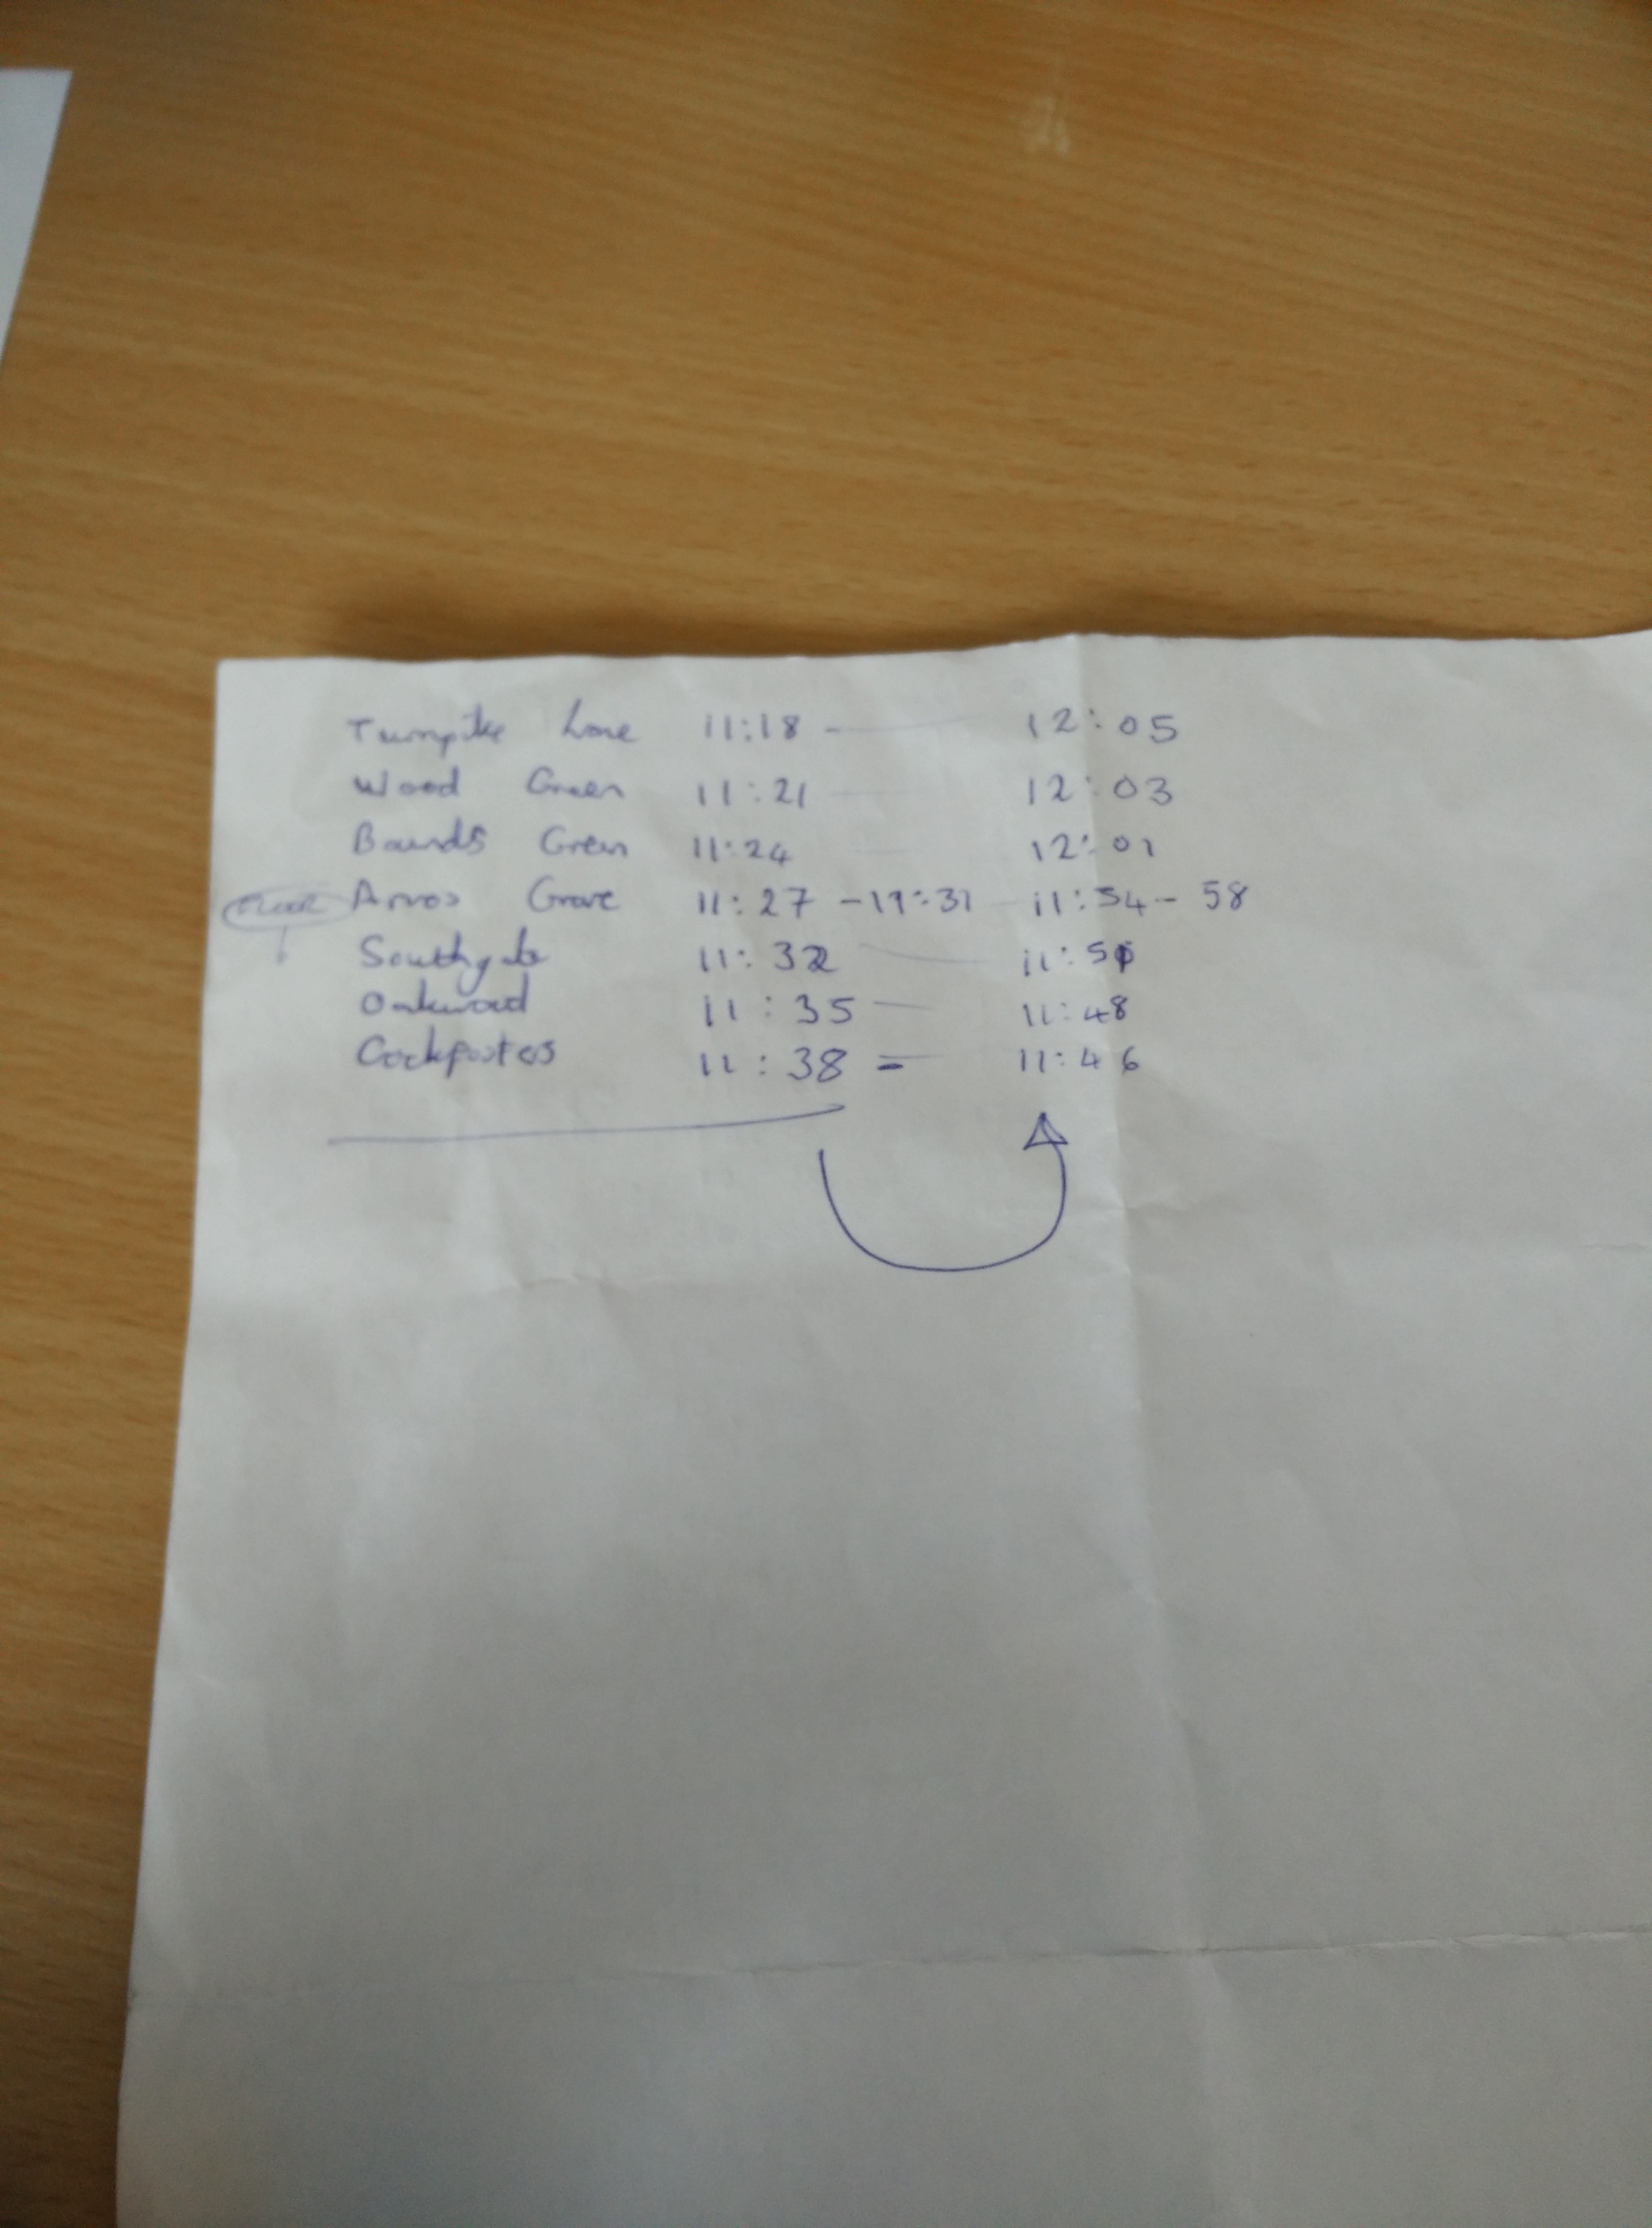 Turnpike Lane 11:18 - 12:05
Wood Green 11:21 - 12:03
Bounds Green 11:24 - 12:01
Arnos Grove 11:27 - 11:31 - 11:54 - 58
Southgate 11:32 - 11:51
Oakwood 11:35 - 11:48
Cockfosters 11:38 = 11:46